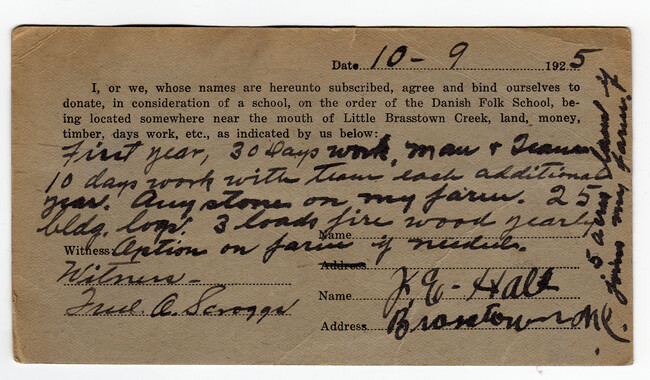 Date 10 - 9 1925
I, or we, whose names are hereunto subscribed, agree and bind ourselves to
donate, in consideration of a school, on the order of the Danish Folk School, be-
ing located somewhere near the mouth of Little Brasstown Creek, land, money,
timber, days work, etc., as indicated by us below:
First year, 30 Days work, man & Team
10 days work with team each additional
year. Any stone on my farm. 25
bldg. logs. 3 loads fire wood yearly
Name
Witness: Option on farm if needed.
Address
Witness -
Fred O. Scroggs
Name J. E. Hall
Address Brasstown N.C.
5 acres land if
joins my farm.